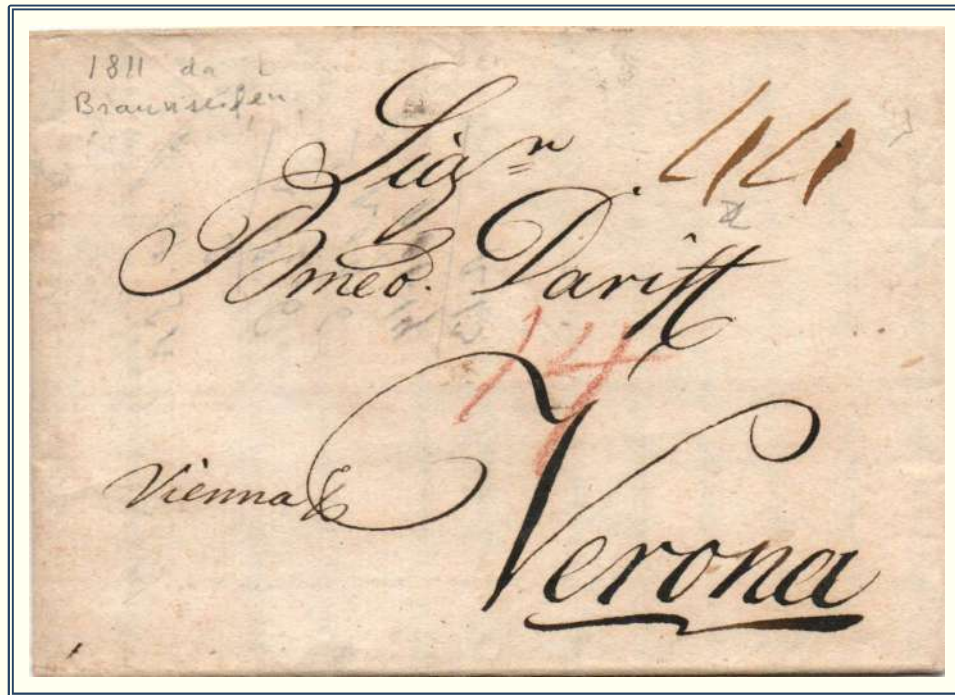 1811 da
Braunseifen
Sigr
44
Bmeo. Dariff
14
Vienna &
Verona